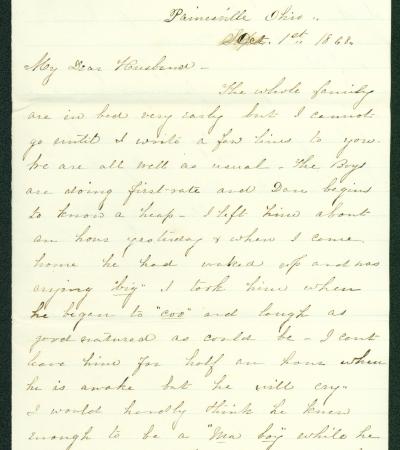 Painesville Ohio.
Oct. 1st. 1862.
My Dear Husband -
The whole family
are in bed very early but I cannot
go until I write a few lines to you.
We are all well as usual - The Boys
are doing first-rate and Dan begins
to know a heap - I left him about
an hour yesterday & when I come
home he had waked up and was
crying "big" I took him when
he began to "coo" and laugh as
good natured as could be - I cant
leave him for half an hour when
he is awake but he will cry -
I would hardly think he knew
enough to be a "Ma boy" while he